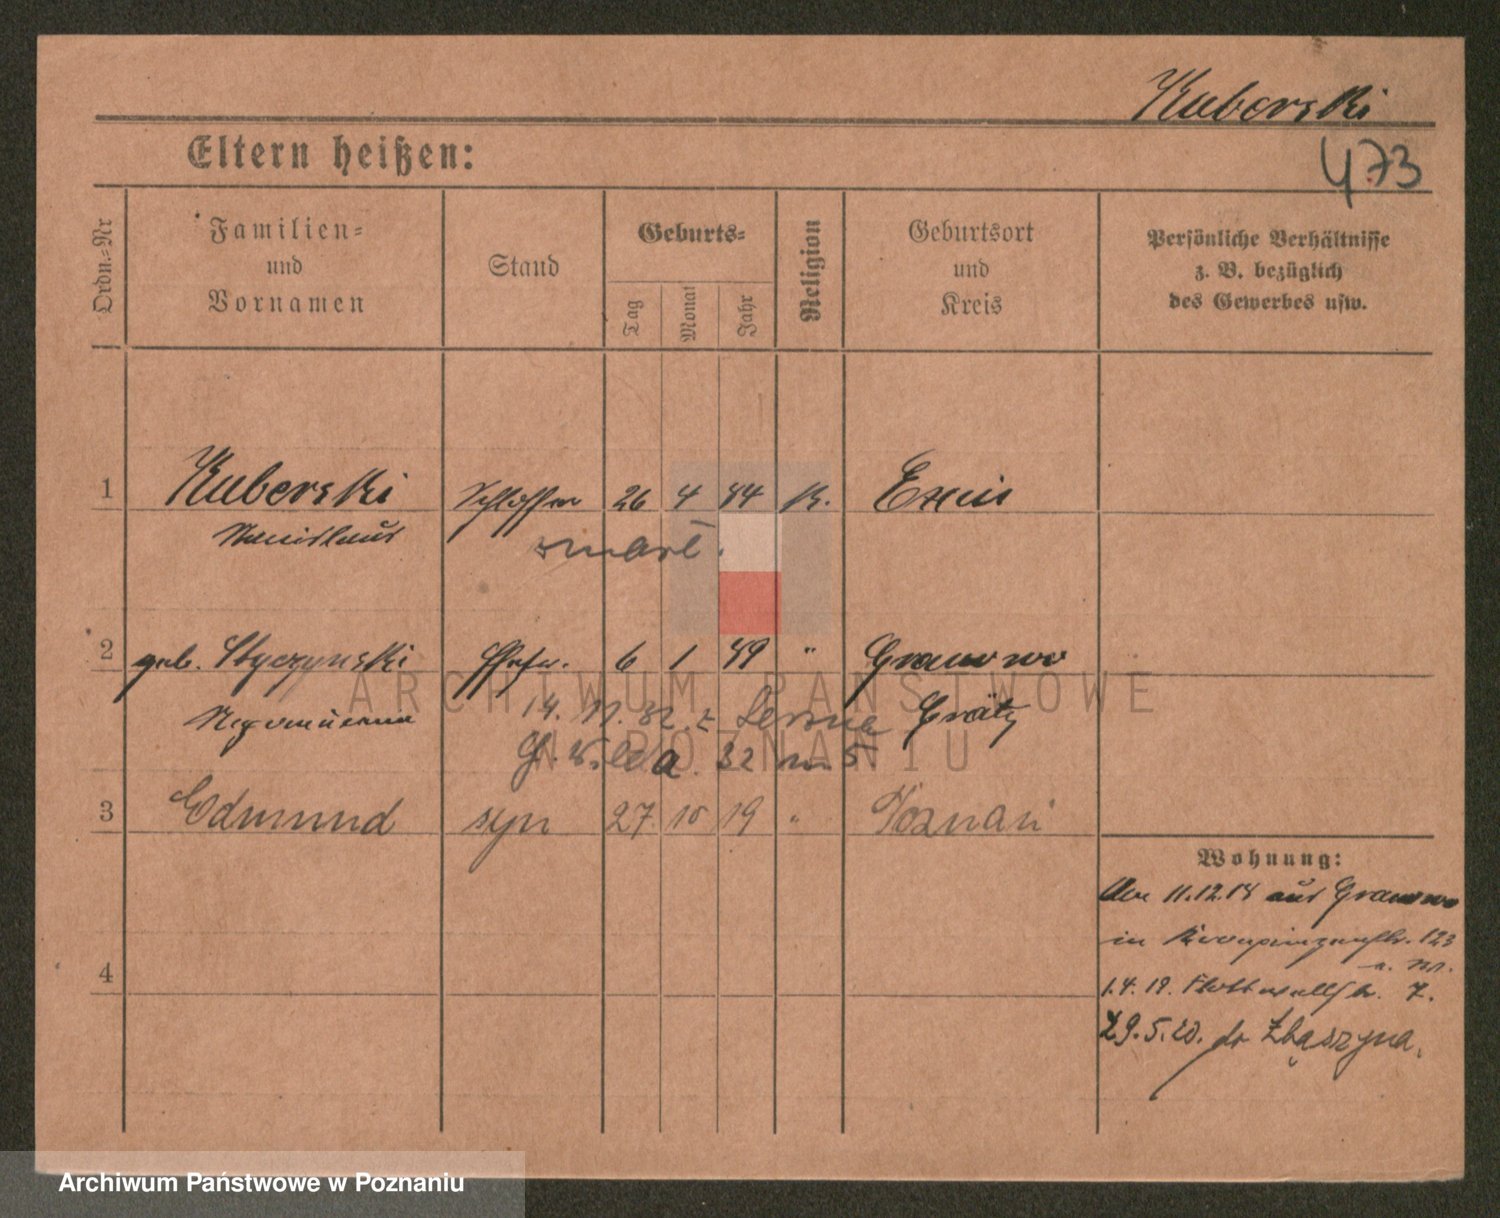 Kuberski
Eltern heißen:
473
Ordn.=Nr
Familien=
und
Vornamen
Stand
Geburts=
Tag
Monat
Jahr
Religion
Geburtsort
und
Kreis
Persönliche Verhältnisse
z. B. bezüglich
des Gewerbes usw.
1 Kuberski Schlosser 26 4 44 K. Exin
Stanislaus
zmarł.
2 geb. Styczynski Ehefr. 6 1 49 " Granowo
14. 11. 32. z Grätz
32 m 5
3 Edmund syn 27. 10 19 " Poznań
Wohnung:
Am 11.12.18 aus Granowo
in 123
1.4.19. Flottwellstr. 7.
4
29.5.20. do Zbąszyna.
ARCHIWUM PAŃSTWOWE
W POZNANIU
Archiwum Państwowe w Poznaniu